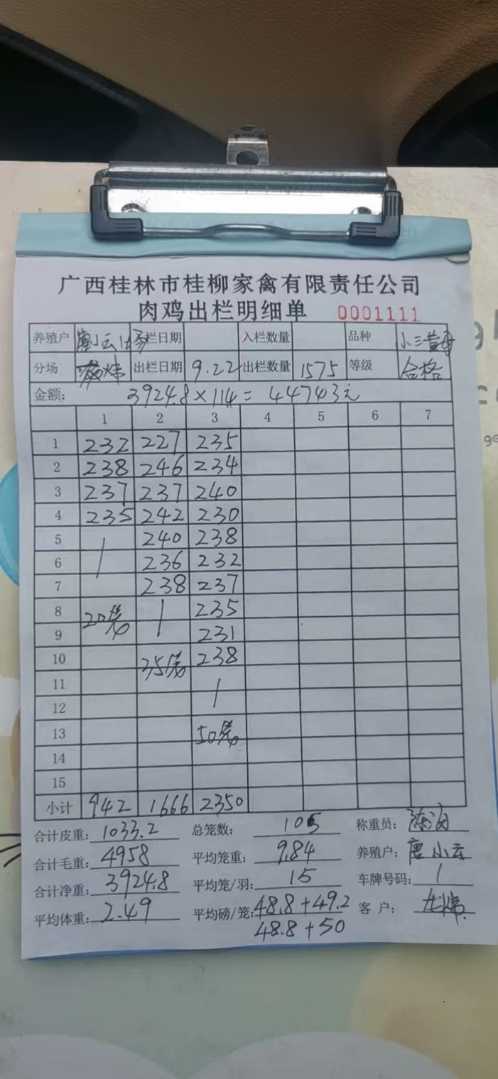 广西桂林市桂柳家禽有限责任公司
肉鸡出栏明细单 0001111
养殖户 唐小云 栏日期 入栏数量 品种 小三黄
分场 出栏日期 9.22 出栏数量 1575 等级 合格
金额: 3924.8×114=44743元
1 2 3 4 5 6 7
1 232 227 235
2 238 246 234
3 237 237 240
4 235 242 230
5 240 238
6 236 232
7 238 237
8 235
9 20笼 231
10 35笼 238
11
12
13 50笼
14
15
小计 942 1666 2350
合计皮重: 1033.2 总笼数: 105 称重员:
合计毛重: 4958 平均笼重: 9.84 养殖户: 唐小云
合计净重: 3924.8 平均笼/羽: 15 车牌号码: /
平均体重: 2.49 平均磅/笼: 48.8+49.2 客户:
48.8+50